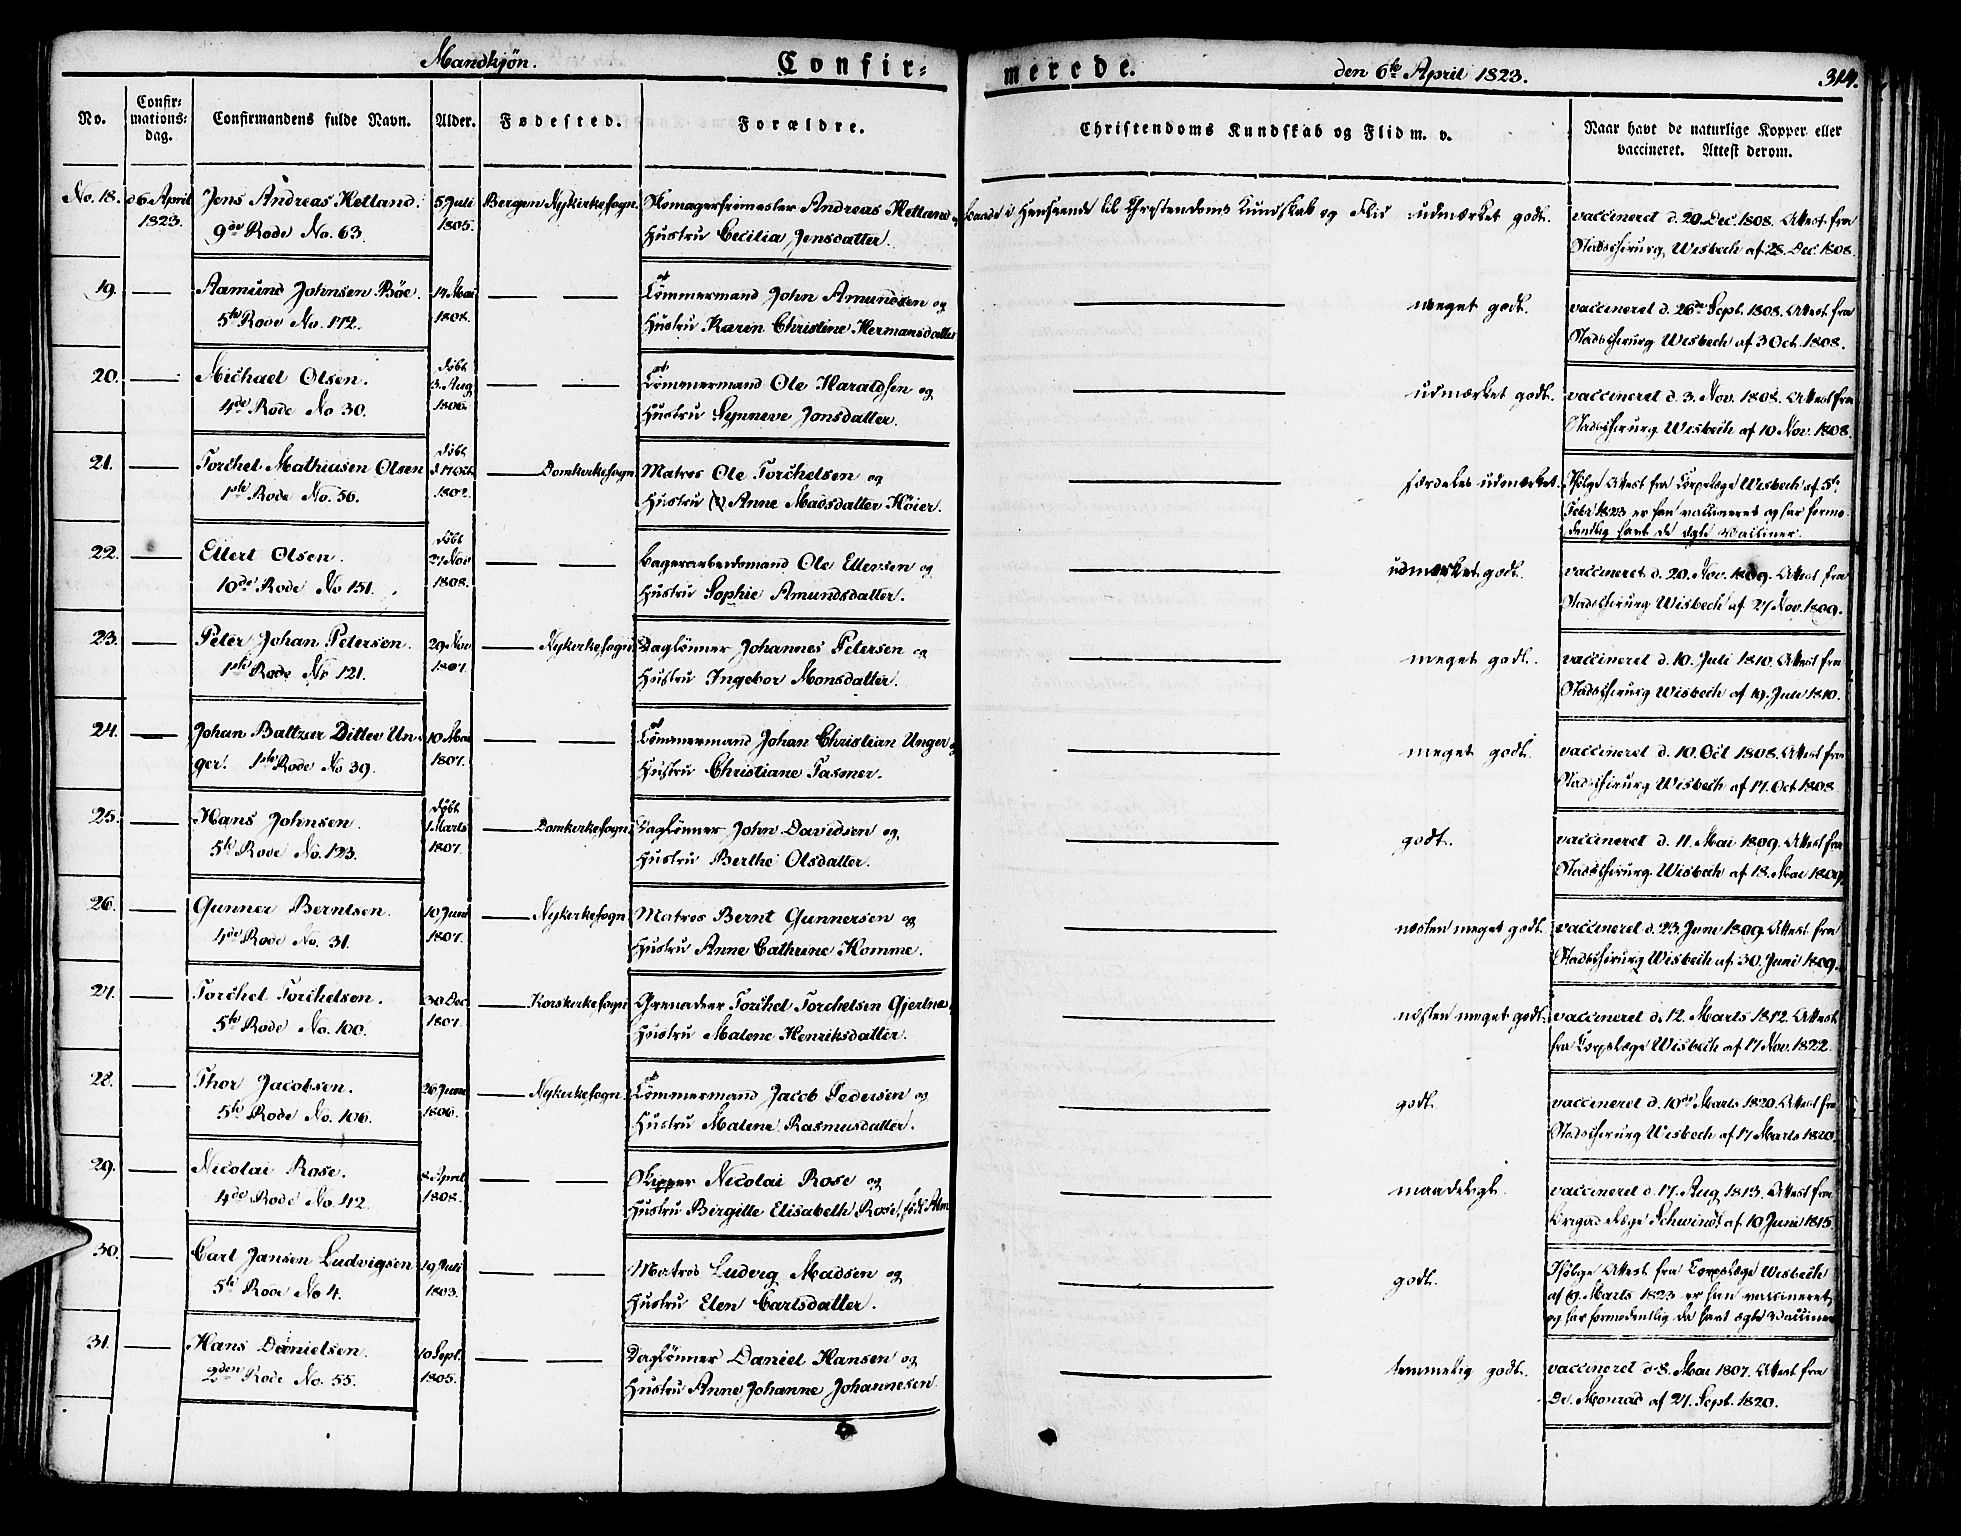 Mandkjøn. Confir= merede. den 6te April 1823. 314.
No.
Confir=
mations=
dag.
Confirmandens fulde Navn.
Alder.
Fødested.
Forældre.
Christendoms Kundskab og Flid m. v.
Naar havt de naturlige Kopper eller
vaccineret. Attest derom.
No. 18. d 6 April Jens Andreas Helland. 5 Juli Bergen Nykirkesogn. Andreas Helland og i Henseende til Christendoms Kundskab og Flid udmærket godt. vaccineret d. 20. Dec. 1808. Attest fra
1823. 9de Rode No. 63. 1805. Hustru Cecilia Jensdatter. Stadschirurg Wisbech af 28. Dec. 1808.
19. Aamund Johnsen Bøe. 14 Mai Tømmermand John Amundsen og meget godt. vaccineret d. 26de Sept. 1808. Attest fra
5te Rode No. 172. 1808. Hustru Karen Christine Hermansdatter Stadschirurg Wisbech af 3 Oct. 1808.
20. Michael Olsen. døbt 3. Aug Tømmermand Ole Haraldsen og udmærket godt. vaccineret d. 3. Nov. 1808. Attest fra
4de Rode No 30. 1806. Hustru Synneve Jonsdatter. Stadschirurg Wisbech af 10 Nov. 1808.
21. Torchel Mathiasen Olsen døbt Domkirkesogn Matros Ole Torchelsen og særdeles udmærket. Ifølge Attest fra Corpslæge Wisbech af 5te
1ste Rode No. 56. Hustru Anne Madsdatter Höier. Febr 1823 er han vaccineret og har formo-
dentlig havt de ægte Vacciner.
22. Ellert Olsen. døbt 27 Nov Bagerarbeidsmand Ole Ellersen og udmærket godt. vaccineret d. 20. Nov. 1809. Attest fra
10de Rode No 151. 1808. Hustru Sophie Amundsdatter. Stadschirurg Wisbech af 27 Nov. 1809.
23. Peter Johan Petersen. 29 Nov Nykirkesogn Daglønner Johannes Petersen og meget godt. vaccineret d. 10. Juli 1810. Attest fra
1ste Rode No 121. 1807. Hustru Ingebor Monsdatter. Stadschirurg Wisbech af 19. Juli 1810.
24. Johan Baltzar Ditlev Un- 10 Mai Tømmermand Johan Christian Unger og meget godt. vaccineret d. 10. Oct 1808. Attest fra
ger. 1ste Rode No 39. 1807. Hustru Christiane Tasmer. Stadschirurg Wisbech af 17. Oct 1808.
25. Hans Johnsen. døbt 1 Marts Domkirkesogn Daglønner John Davidsen og godt. vaccineret d. 11. Mai 1809. Attest fra
5te Rode No. 123. 1807. Hustru Berthe Olsdatter. Stadschirurg Wisbech af 18. Mai 1809.
26. Gunner Berntsen. 10 Juni Nykirkesogn Matros Bernt Gunnersen og næsten meget godt. vaccineret d. 23. Juni 1809. Attest fra
4de Rode No. 31. 1807. Hustru Anne Cathrine Homme. Stadschirurg Wisbech af 30. Juni 1809.
27. Torchel Torchelsen. 30 Dec Korskirkesogn Grenadeer Torchel Torchelsen næsten meget godt. vaccineret d. 12. Marts 1812. Attest
5te Rode No. 100. 1807. Hustru Malene Henriksdatter. fra Corpslæge Wisbech af 17 Nov. 1822.
28. Thor Jacobsen. 26 Juni Nykirkesogn Tømmermand Jacob Pedersen og godt. vaccineret d. 10de Marts 1820. Attest fra
5te Rode No. 106. 1806. Hustru Malene Rasmusdatter. Stadschirurg Wisbech af 17 Marts 1820.
29. Nicolai Rose. 8 April Skipper Nicolai Rose og maadeligt. vaccineret d. 17. Aug 1813. Attest fra
4de Rode No. 42. 1808. Hustru Birgitte Elisabeth Rose, født Alm Brigadelæge Schwindt af 10 Juni 1815.
30. Carl Jansen Ludvigsen 19 Juli Matros Ludvig Madsen og godt. Ifølge Attest fra Corpslæge Wisbech
5te Rode No 4. 1803. Hustru Elen Carlsdatter. af 19. Marts 1823 er han vaccineret
og har formodentlig da havt ægte Vacciner
31. Hans Danielsen. 10 Sept. Daglønner Daniel Hansen og temmelig godt. vaccineret d. 8. Mai 1807. Attest fra
2den Rode No. 55. 1805. Hustru Anne Johanne Johannesen. Dr. Monrad af 27. Sept. 1820.